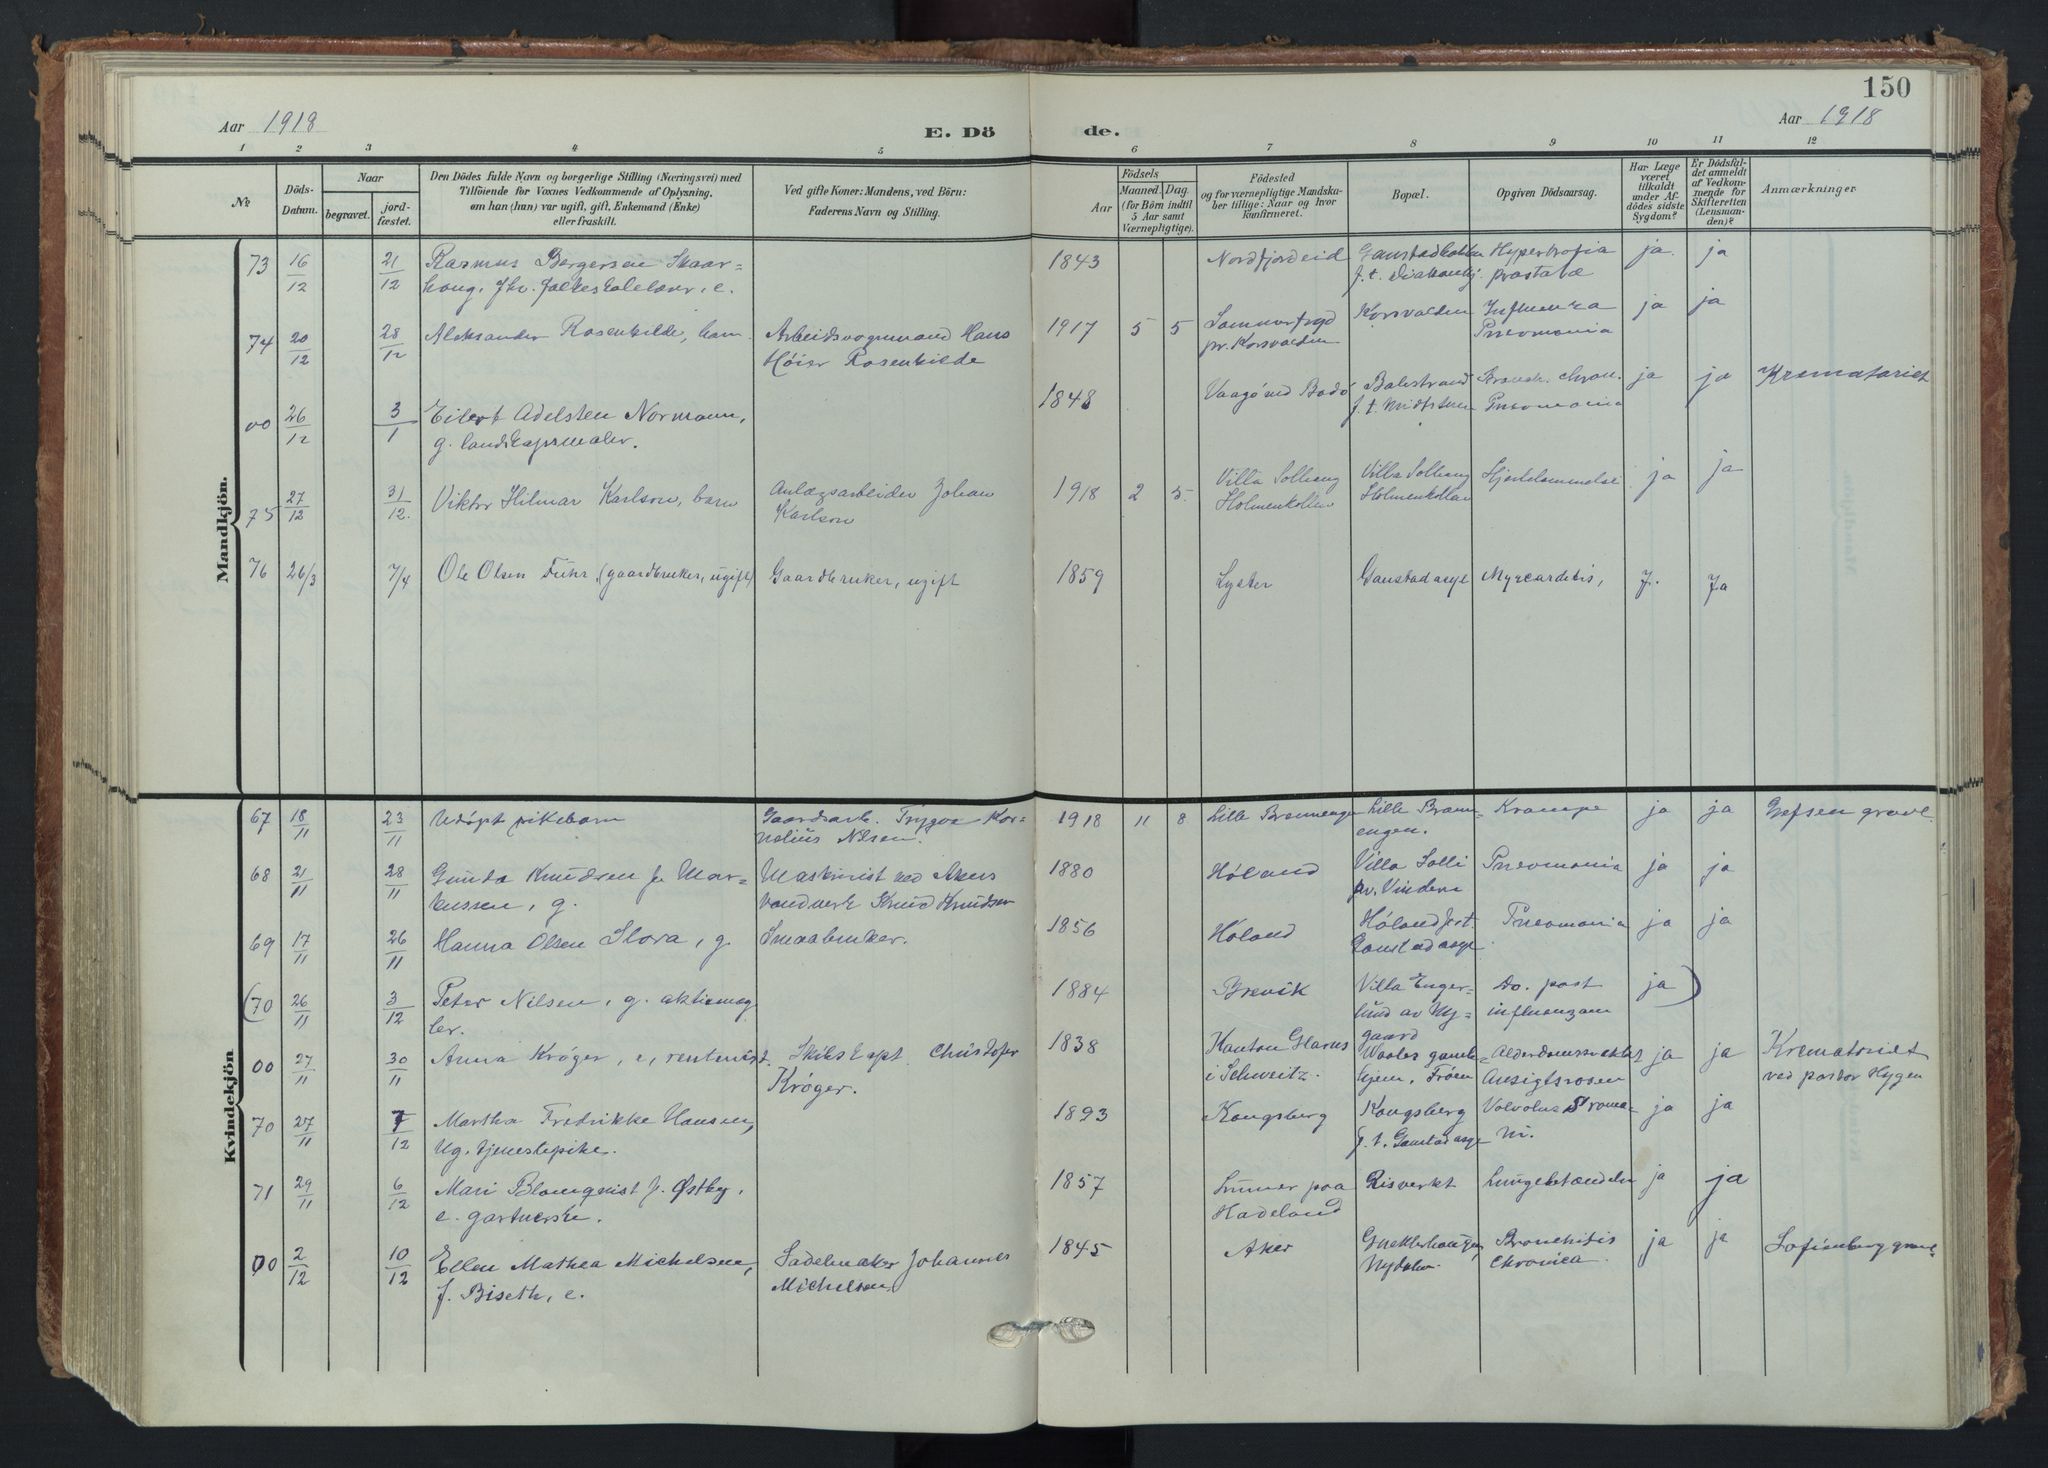 150
Aar 1918
E. Dö
de.
Aar 1918
1 2 3 4 5 6 7 8 9 10 11 12
№
Döds-
Datum.
Naar
begravet.
jord-
fæstet.
Den Dödes fulde Navn og borgerlige Stilling (Næringsvei) med
Tilföiende for Voxnes Vedkommende af Oplysning,
om han (hun) var ugift, gift, Enkemand (Enke)
eller fraskilt.
Ved gifte Koner: Mandens, ved Börn:
Faderens Navn og Stilling.
Födsels
Aar
Maaned. Dag.
(for Börn indtil
5 Aar samt
Værnepligtige).
Födested
og for værnepligtige Mandska-
ber tillige: Naar og hvor
Konfirmeret.
Bopæl.
Opgiven Dödsaarsag.
Har Læge
været
tilkaldt
under Af-
dödes sidste
Sygdom?
Er Dödsfal-
det anmeldt
af Vedkom-
mende for
Skifteretten
(Lensman-
den)?
Anmærkninger
Mandkjön.
73 16/12 21/12 Rasmus Bergersen Skaar- 1843 Nordfjordeid Gaustadbakken Hypertrofia ja. ja
haug, fhv. folkeskolelærer, e. f. t. Diakonhj. prostatæ
74 20/12 28/12 Aleksander Rosenkilde, barn Arbeidsvognmand Hans 1917 5 5 Sommerfryd Korsvolden Influenza ja ja
Høier Rosenkilde pr. Korsvolden Pneomonia
00 26/12 3/1 Eilert Adelsten Normann, 1848 Vaagø ved Bodø Balestrand Bronch. chron. ja ja Krematoriet
g. landskapsmaler. f. t. Midtstuen Pneomonia
75 27/12 31/12. Viktor Hilmar Karlson, barn Anlægsarbeider Johan 1918 2 5. Villa Solhaug Villa Solhaug Hjertelammelse ja ja
Karlson Holmenkollen Holmenkollen
76 26/3 7/4 Ole Olsen Fuhr, (gaardbruker, ugift) Gaardbruker, ugift 1859 Lyster Gaustad asyl Myocarditis, J. Ja
Kvindekjön
67 18/11 23/11 Udøpt pikebarn Gaardsarb. Trygve Kor- 1918 11 8 Lille Brannengen Lille Brann- Krampe ja ja Grefsen gravl.
nelius Nilsen. engen.
68 21/11 28/11 Gunda Knudsen f. Mar- Maskinist ved Akers 1880 Høland Villa Solli Pneomonia ja ja
kussen, g. vandverk Knud Knudsen pr. Vinderen
69 17/11 26/11 Hanna Olsen Stora, g. Smaabruker. 1856 Høland Høland f. t. Pneomonia ja ja
Gaustad asyl.
(70 26/11 3/12 Peter Nilsen, g. aktiemeg- 1884 Brevik Villa Enger- Do. post ja)
ler. lund av Ny- influenzam
gaard
00 27/11 30/11 Anna Krøger, e, rentenist. Skibskapt. Christofer 1838 Kanton Glarus Waales gamle- Alderdomssvakhet ja ja Krematoriet
Krøger. i Schweitz. hjem, Frøen Ansigtsrosen ved pastor Hygen
70 27/11 7/12 Martha Fredrikke Hansen, 1893 Kongsberg Kongsberg Volvolus S roma- ja ja
Ug. tjenestepike. f. t. Gaustad asyl ni.
71 29/11 6/12 Mari Blomqvist f. Østby, 1857 Lunner paa Risverkt Lungebetændelse ja ja
e. gartnerske. Hadeland
00 2/12 10/12 Ellen Mathea Michelsen, Sadelmaker Johannes 1845 Aker Gullerhaugen, Bronchitis ja ja Sofienberg gravl.
f. Biseth, e. Michelsen. Nydalen. Chronica.